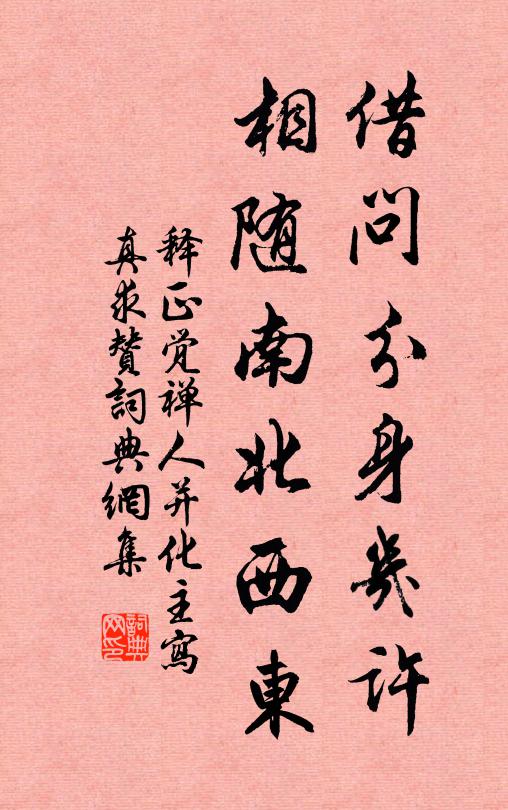 借问分身几许
相随南北西東
释正觉禅人并化主寫
真求赞詞典網集
詞典网印